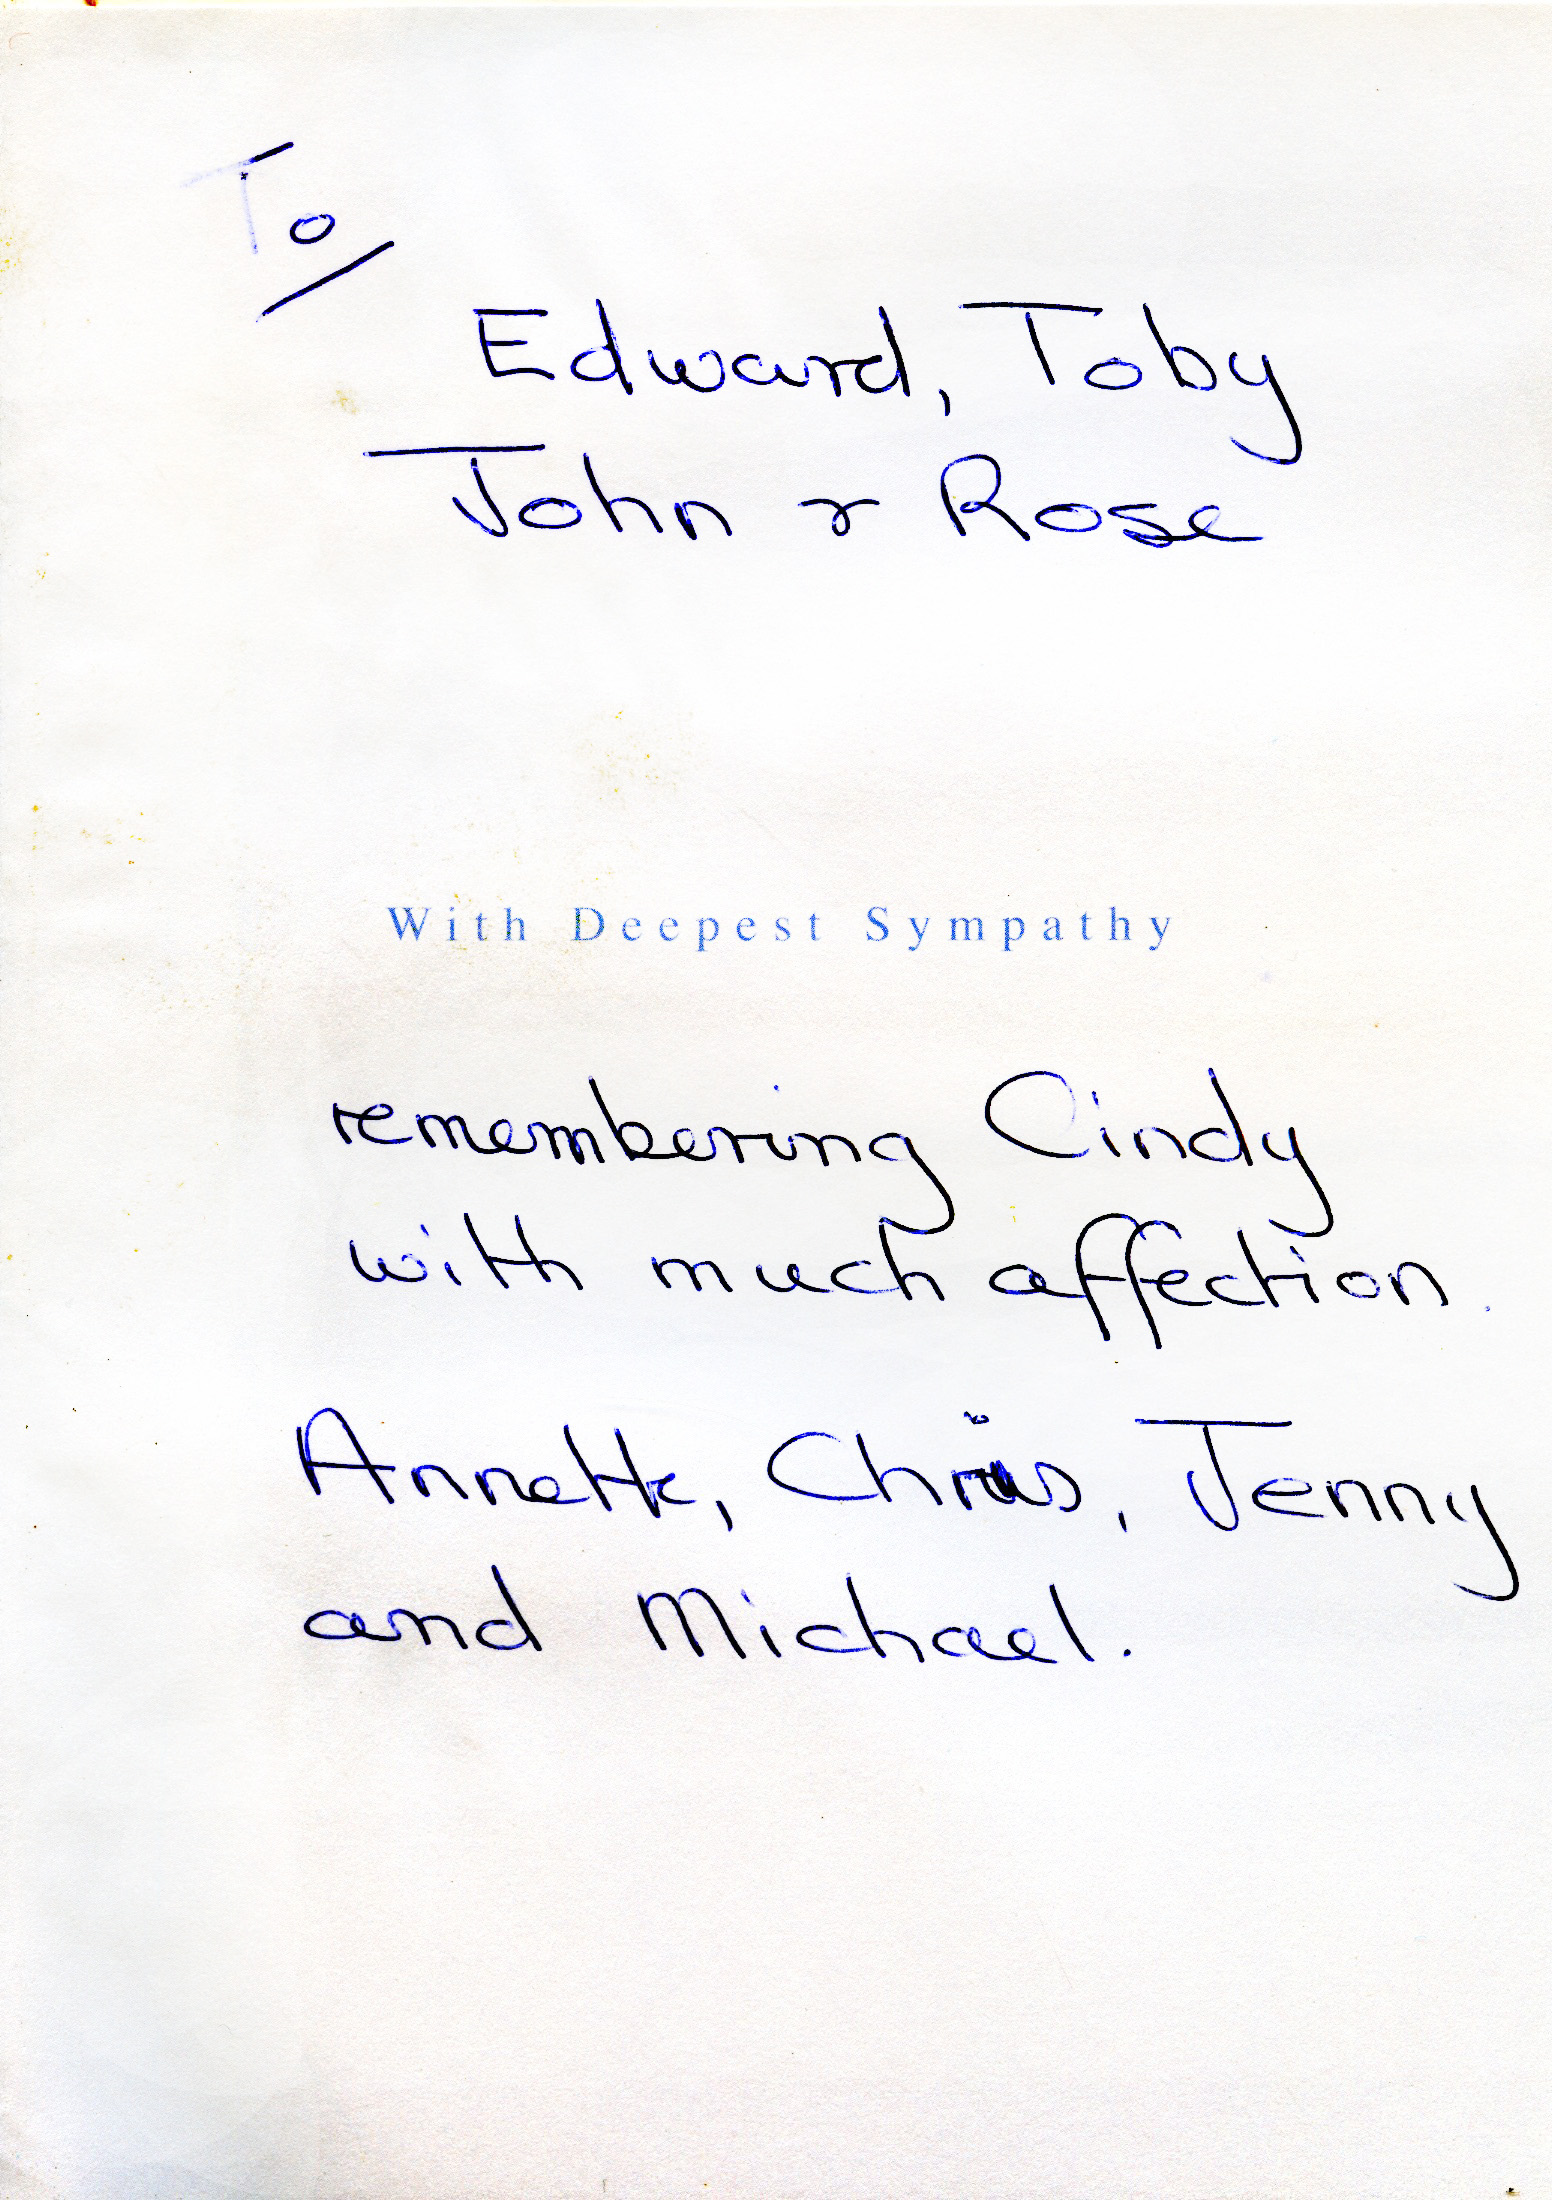 To
Edward, Toby
John & Rose
With Deepest Sympathy
remembering Cindy
with much affection.
Annette, Chris, Jenny
and Michael.